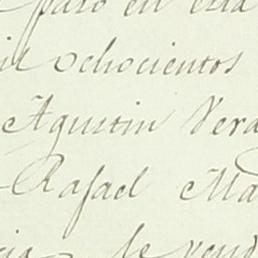 paso en esta
il ochocientos
Agustin Vera
Rafael Ma
se vend